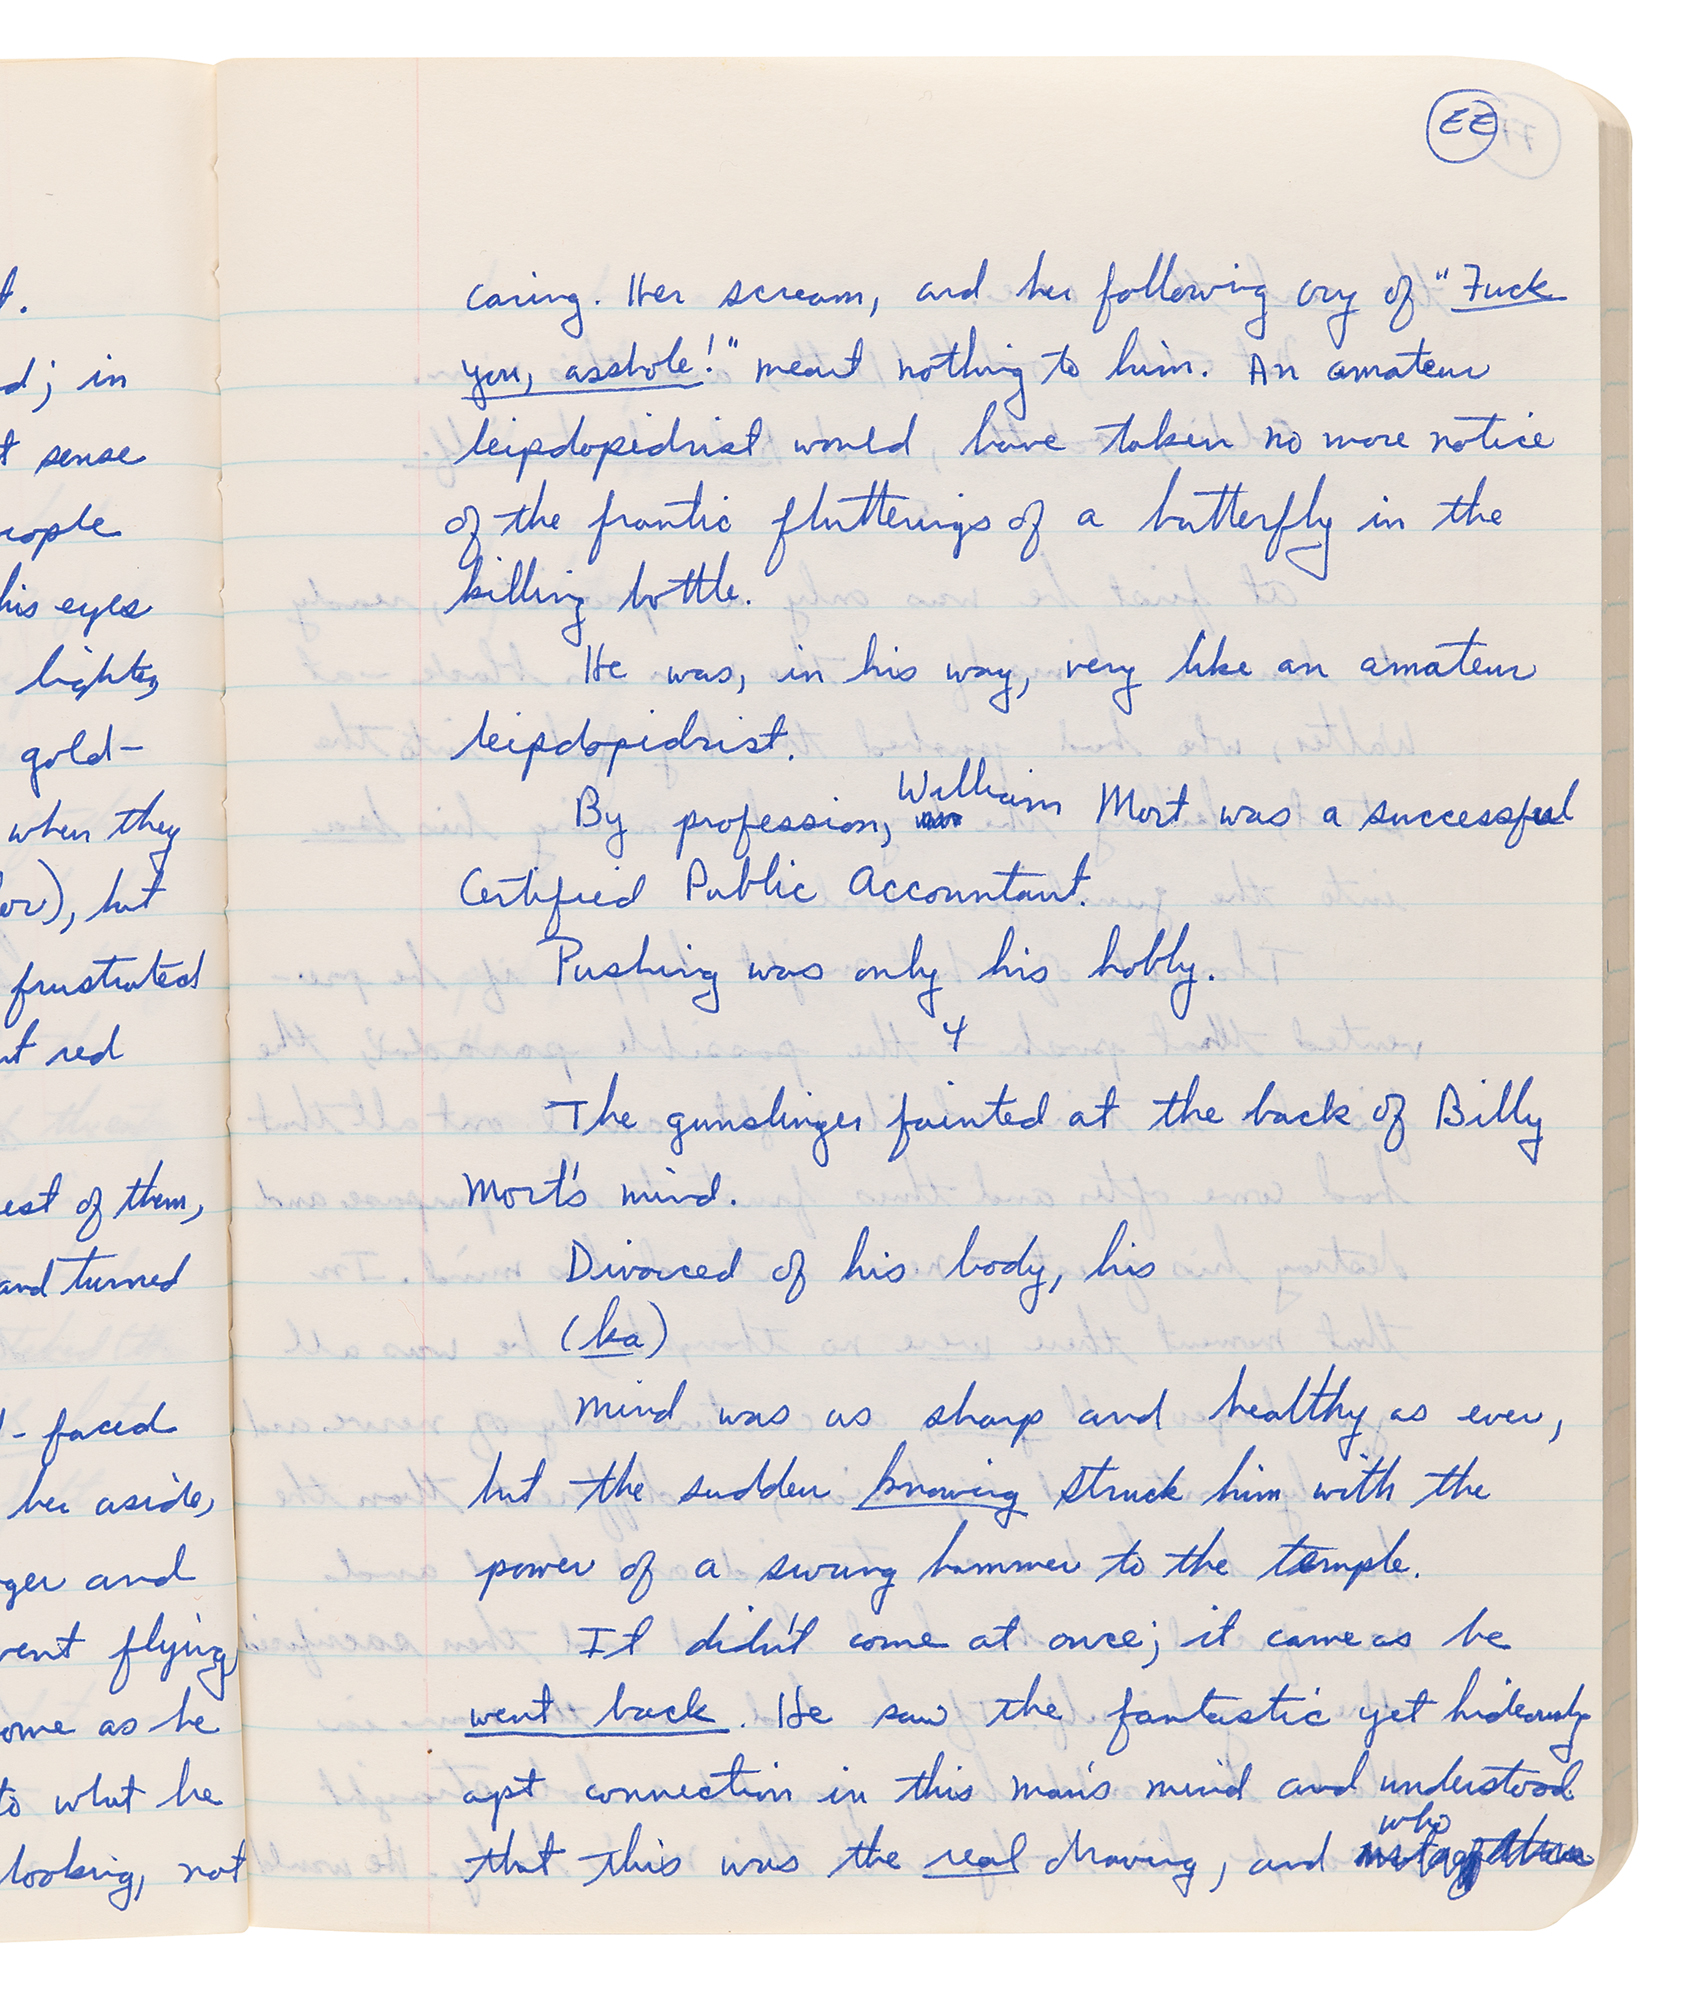 t.
d; in
t sense
eople
his eyes
lights,
gold-
when they
or), but
frustrated
ut red
est of them,
and turned
- faced
her aside,
ger and
vent flying
ome as he
to what he
looking, not
EE
caring. Her scream, and her following cry of "Fuck
you, asshole!" meant nothing to him. An amateur
leipdopidrist would have taken no more notice
of the frantic flutterings of a butterfly in the
killing bottle.
He was, in his way, very like an amateur
leipdopidrist.
By profession, William Mort was a successful
Certified Public Accountant.
Pushing was only his hobby.
4
The gunslinger fainted at the back of Billy
Mort's mind.
Divorced of his body, his
(ka)
mind was as sharp and healthy as ever,
but the sudden knowing struck him with the
power of a swung hammer to the temple.
It didn't come at once; it came as he
went back. He saw the fantastic yet hideously
apt connection in this man's mind and understood
that this was the real drawing, and who